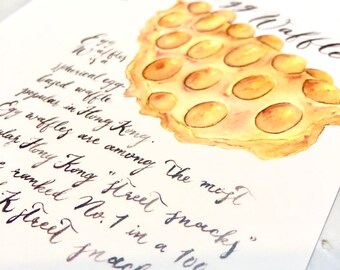 gg Waffle
Egg
Waffles
is a
spherical egg-
based waffle
popular in Hong Kong.
Egg waffles are among the most
ular Hong Kong "street snacks"
e ranked No. 1 in a 100
K street snac